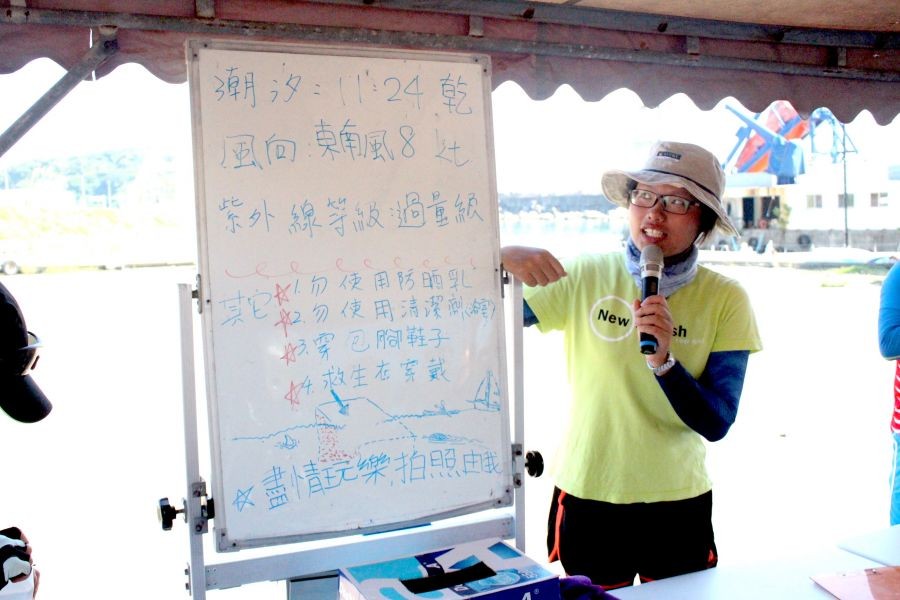 潮汐：11:24 乾
風向：東南風8
紫外線等級：過量級
其它 ☆1.勿使用防晒乳
☆2.勿使用清潔劑
☆3.穿包腳鞋子
☆4.救生衣穿戴
☆盡情玩樂,拍照由我
New